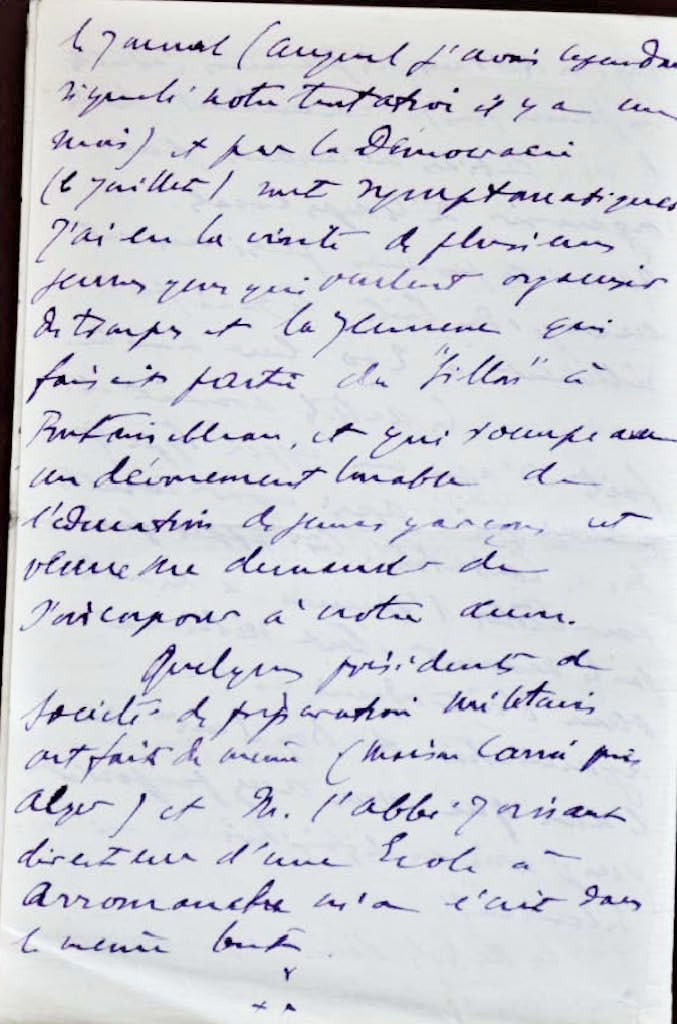 le journal (auquel j'avais cependant
signalé notre tentative il y a un
mois) et par la Démocratie
(6 Juillet) sont symptomatiques
J'ai eu la visite de plusieurs
jeunes gens qui veulent organiser
des troupes et la jeunesse qui
faisait partie du "Sillon" à
Fontainebleau, et qui s'occupe avec
un dévouement louable de
l'éducation des jeunes garçons est
venue me demander de
s'incorporer à notre œuvre.
Quelques présidents de
Sociétés de préparation militaire
ont fait de même (Maison Carrée près
Alger) et M. l'abbé
directeur d'une Ecole à
Arromanches m'a écrit dans
le même but.
x
x x